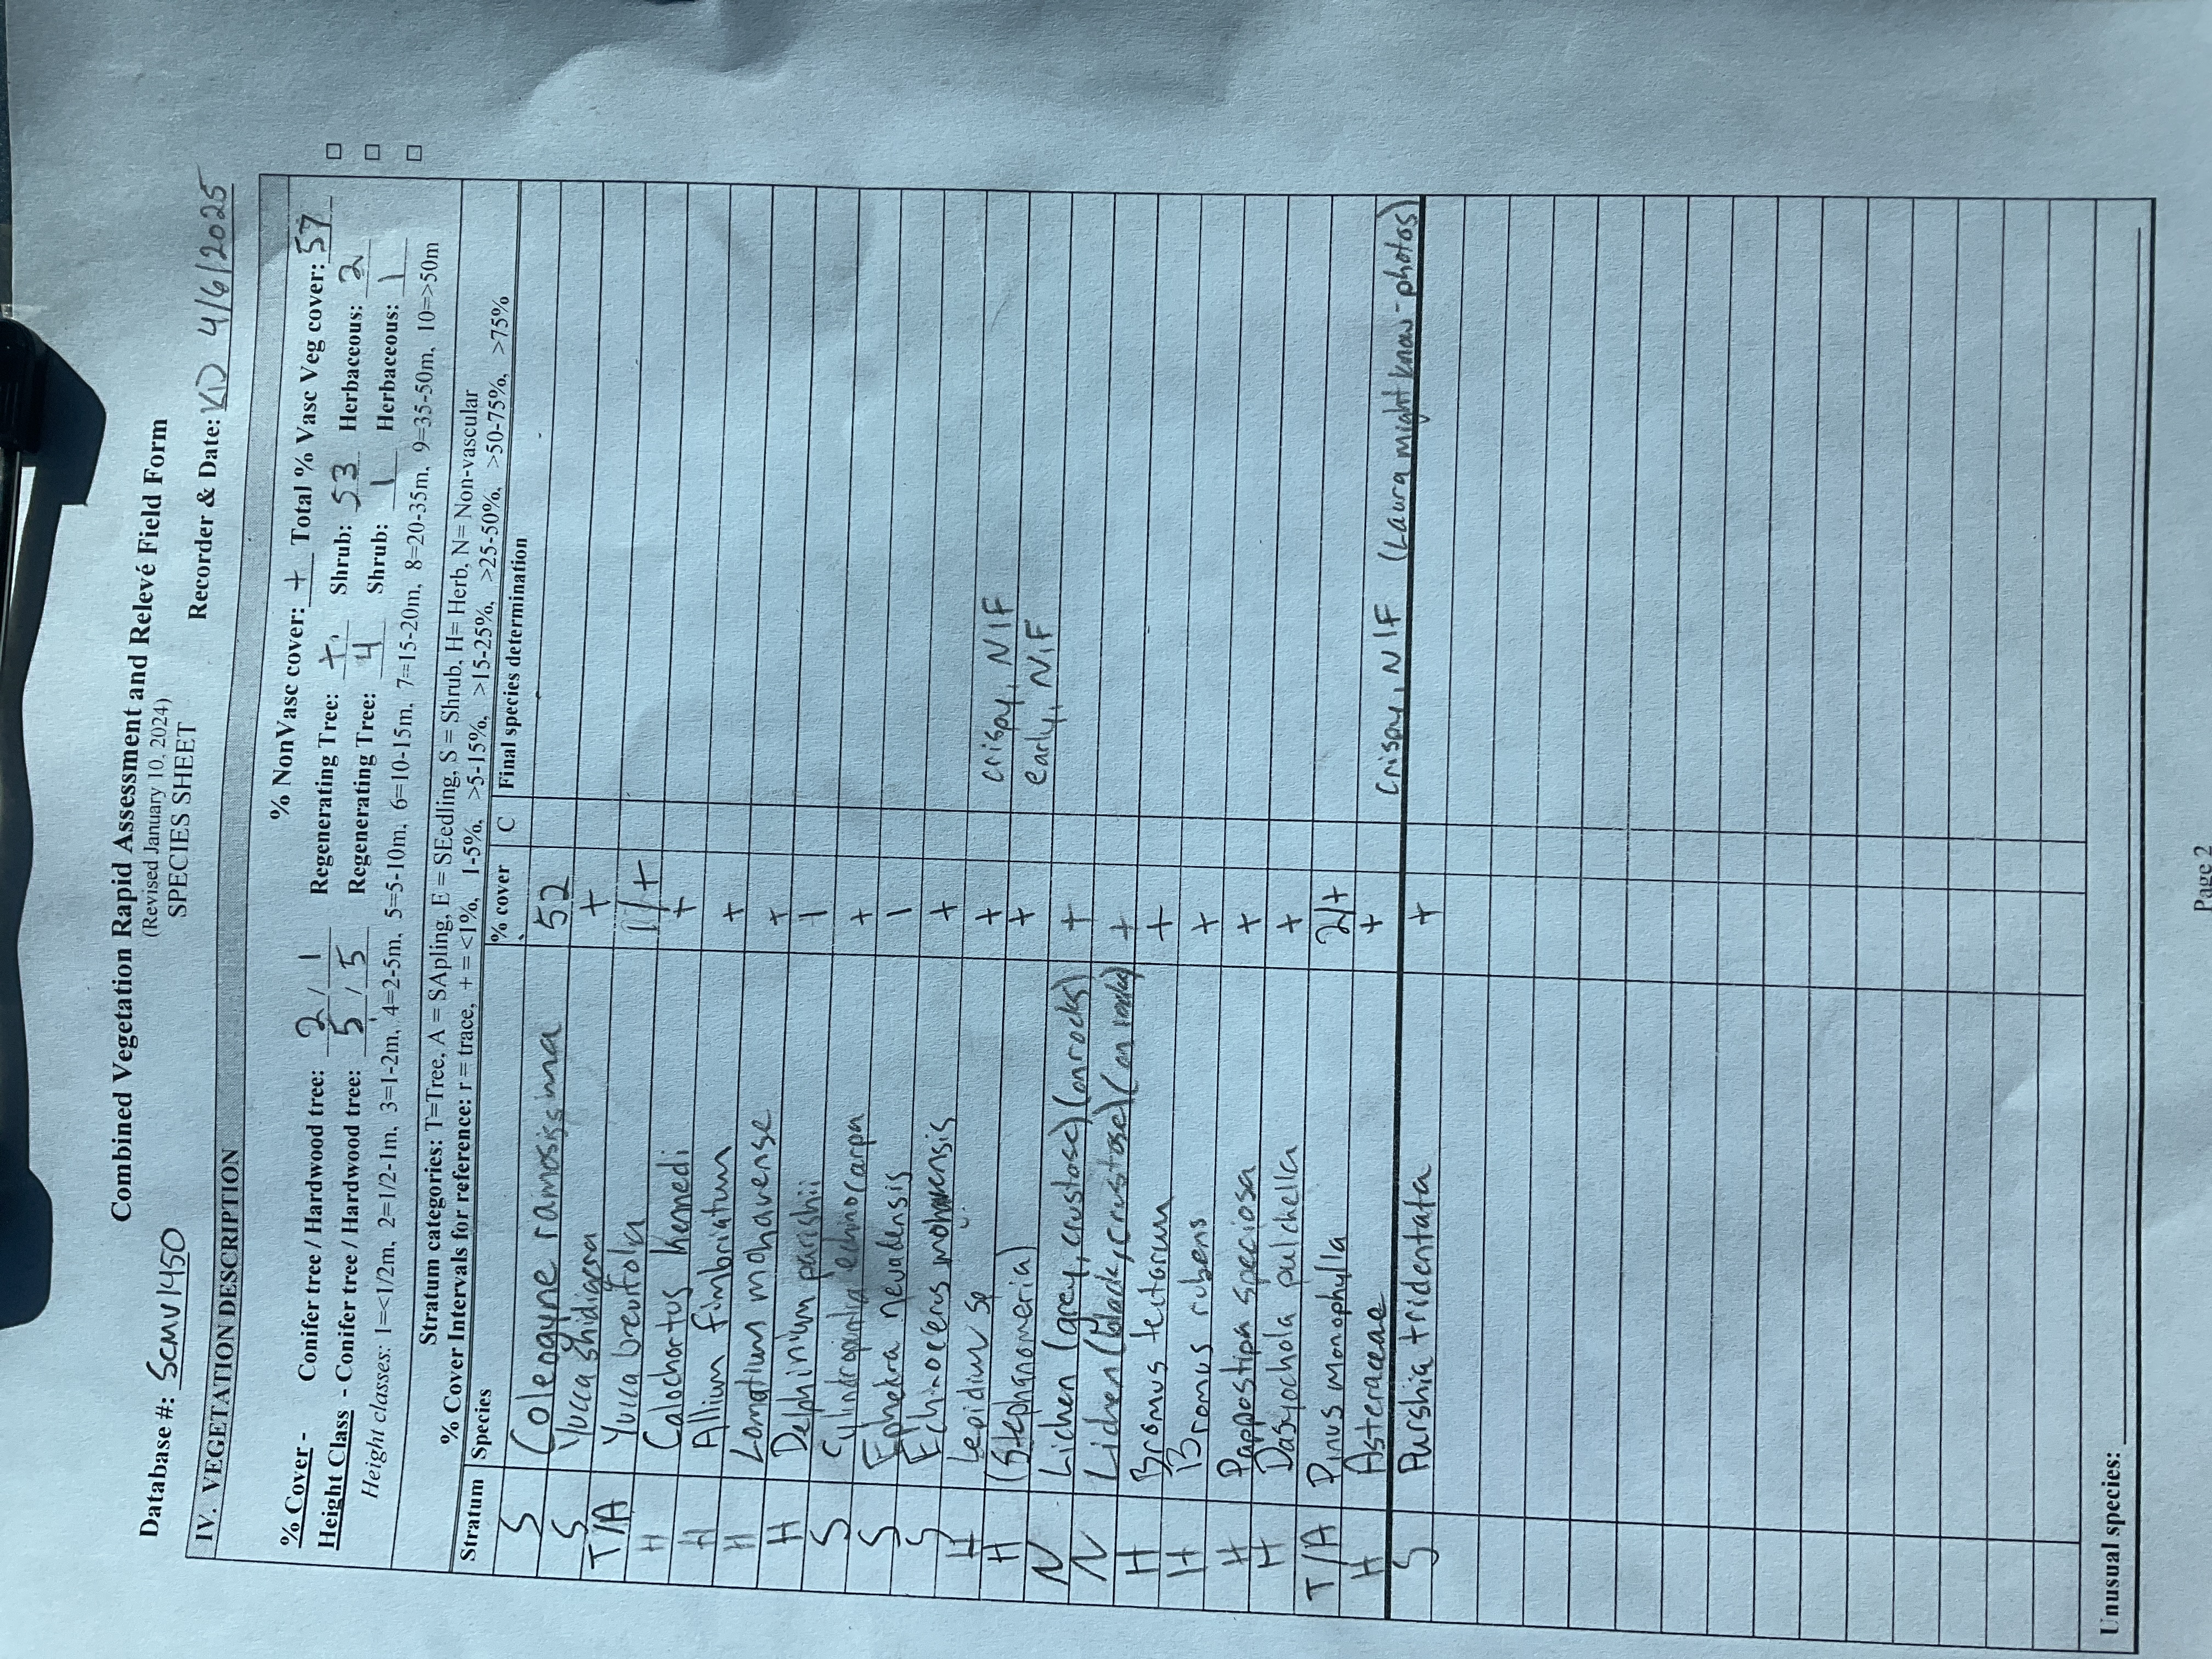 Combined Vegetation Rapid Assessment and Relevé Field Form
(Revised January 10, 2024)
SPECIES SHEET
Database #: SCMV1450 Recorder & Date: KD 4/6/2025
IV. VEGETATION DESCRIPTION
% NonVasc cover: + Total % Vasc Veg cover: 57
% Cover - Conifer tree / Hardwood tree: 2 / 1 Regenerating Tree: + Shrub: 53 Herbaceous: 2
Height Class - Conifer tree / Hardwood tree: 5 / 5 Regenerating Tree: 4 Shrub: 1 Herbaceous: 1
Height classes: 1=<1/2m, 2=1/2-1m, 3=1-2m, 4=2-5m, 5=5-10m, 6=10-15m, 7=15-20m, 8=20-35m, 9=35-50m, 10=>50m
Stratum categories: T=Tree, A = SApling, E = SEedling, S = Shrub, H= Herb, N= Non-vascular
% Cover Intervals for reference: r = trace, + = <1%, 1-5%, >5-15%, >15-25%, >25-50%, >50-75%, >75%
Stratum Species % cover C Final species determination
S Coleogyne ramosissima 52
S Yucca shidigera +
T/A Yucca brevifola 1/+
H Calochortus kennedi +
H Allium fimbriatum +
H Lomatium mohavense +
H Delphinium parishii 1
S Cylindropuntia echinocarpa +
S Ephedra nevadensis 1
S Echinocereus mohavensis +
H Lepidium sp + crispy, NIF
H (Stephanomeria) + early, NIF
N Lichen (grey, crustose) (on rocks) +
N Lichen (black, crustose) (on rocks) +
H Bromus tectorum +
H Bromus rubens +
H Pappostipa speciosa +
H Dasyochola pulchella +
T/A Pinus monophylla 2/+
H Asteraceae + Crispy, NIF (Laura might know - photos)
S Purshia tridentata +
Unusual species:
Page 2